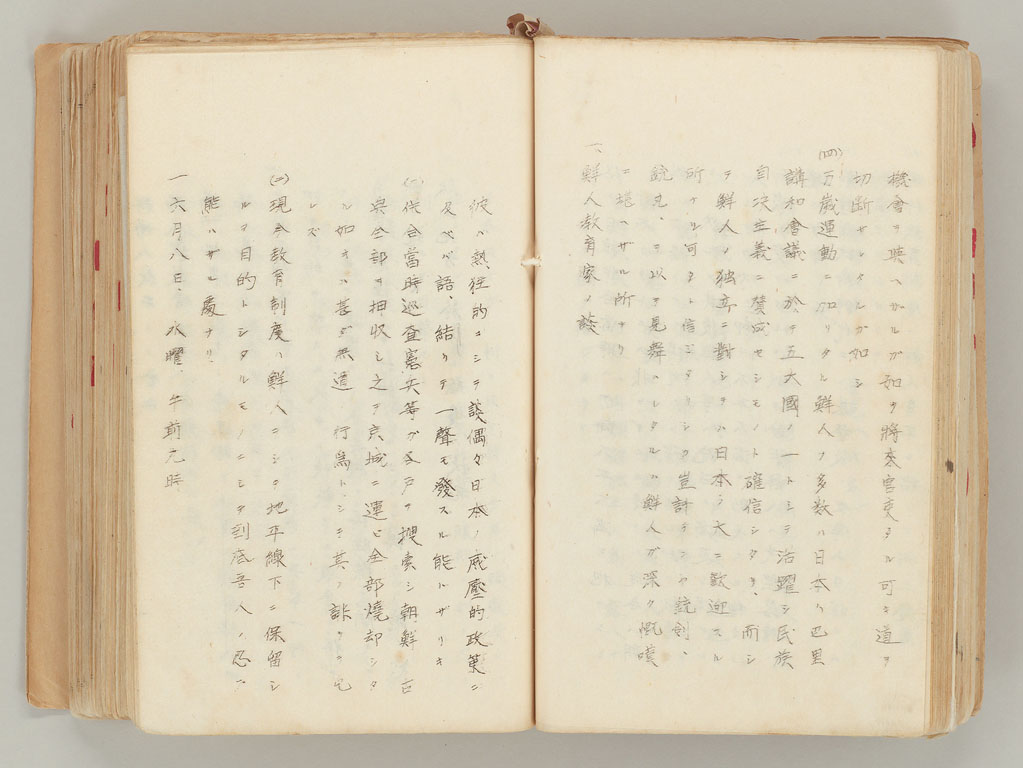 機會ヲ與ヘザルガ如キ將来官吏タル可キ道ヲ
切断サレタルガ如シ
(四)万歳運動ニ加リタル鮮人ノ多数ハ日本ガ巴里
講和會議ニ於テ五大國ノ一トシテ活躍シ民族
自決主義ニ賛成セシモノト確信シタリ、而シ
テ鮮人ノ独立ニ對シテハ日本ノ大ニ歓迎スル
所ナル可キヲ信ジタリシニ豈計ランヤ銃剣、
銃丸、ヲ以テ見舞ハレタルハ鮮人ガ深ク慨嘆
ニ堪ヘザル所ナリ
一、鮮人教育家ノ談
彼ハ熱狂的ニシテ談偶々日本ノ威壓的政策ニ
及ベバ語、結リテ一聲モ發スル能ハザリキ
(一)併合當時巡査憲兵等ガ各戸ヲ捜索シ朝鮮ノ古
典全部ヲ押収シ之ヲ京城ニ運ビ全部燒却シタ
ル如キハ甚ダ無道ノ行爲トシテ其ノ訴
レズ
(二)現今教育制度ハ鮮人ニシテ地平線下ニ保留シ
ルヲ目的トシタルモノニシテ到底吾人ノ忍ブ
能ハザル處ナリ、
一六月八日、水曜、午前九時